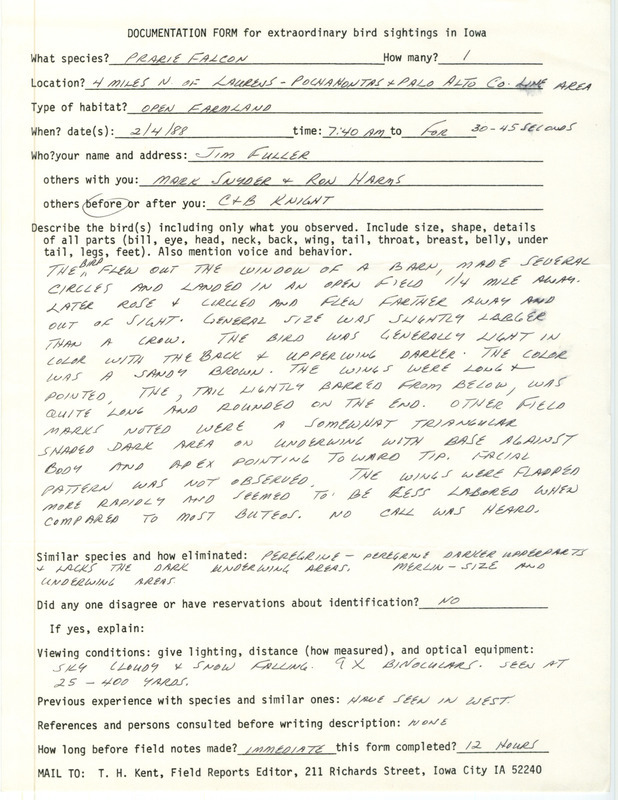 DOCUMENTATION FORM for extraordinary bird sightings in Iowa
What species? PRARIE FALCON How many? 1
Location? 4 MILES N OF LAURENS - POCHAHONTAS & PALO ALTO CO. LINE AREA
Type of habitat? OPEN FARMLAND
When? date(s): 2/4/88 time: 7:40 AM to FOR 30-45 SECONDS
Who?your name and address: JIM FULLER
others with you: MARK SNYDER & RON HARMS
others before or after you: C&B KNIGHT
Describe the bird(s) including only what you observed. Include size, shape, details
of all parts (bill, eye, head, neck, back, wing, tail, throat, breast, belly, under
tail, legs, feet). Also mention voice and behavior.
THE BIRD FLEW OUT THE WINDOW OF A BARN, MADE SEVERAL
CIRCLES AND LANDED IN AN OPEN FIELD 1/4 MILE AWAY.
LATER ROSE & CIRCLED AND FLEW FARTHER AWAY AND
OUT OF SIGHT. GENERAL SIZE WAS SLIGHTLY LARGER
THAN A CROW. THE BIRD WAS GENERALLY LIGHT IN
COLOR WITH THE BACK & UPPERWING DARKER. THE COLOR
WAS A SANDY BROWN. THE WINGS WERE LONG &
POINTED, THE, TAIL LIGHTLY BARRED FROM BELOW, WAS
QUITE LONG AND ROUNDED ON THE END. OTHER FIELD
MARKS NOTED WERE A SOMEWHAT TRIANGULAR
SHADED DARK AREA ON UNDERWING WITH BASE AGAINST
BODY AND APEX POINTING TOWARD TIP. FACIAL
PATTERN WAS NOT OBSERVED. THE WINGS WERE FLAPPED
MORE RAPIDLY AND SEEMED TO BE LESS LABORED WHEN
COMPARED TO MOST BUTEOS. NO CALL WAS HEARD.
Similar species and how eliminated: PEREGRINE - PEREGRINE DARKER UPPERPARTS
& LACKS THE DARK UNDERWING AREAS. MERLIN - SIZE AND
UNDERWING AREAS
Did any one disagree or have reservations about identification? NO
If yes, explain:
Viewing conditions: give lighting, distance (how measured), and optical equipment:
SKY CLOUDY & SNOW FALLING. 9X BINOCULARS. SEEN AT
25 - 400 YARDS.
Previous experience with species and similar ones: HAVE SEEN IN WEST.
References and persons consulted before writing description: NONE
How long before field notes made? IMMEDIATE this form completed? 12 HOURS
MAIL TO: T. H. Kent, Field Reports Editor, 211 Richards Street, Iowa City IA 52240